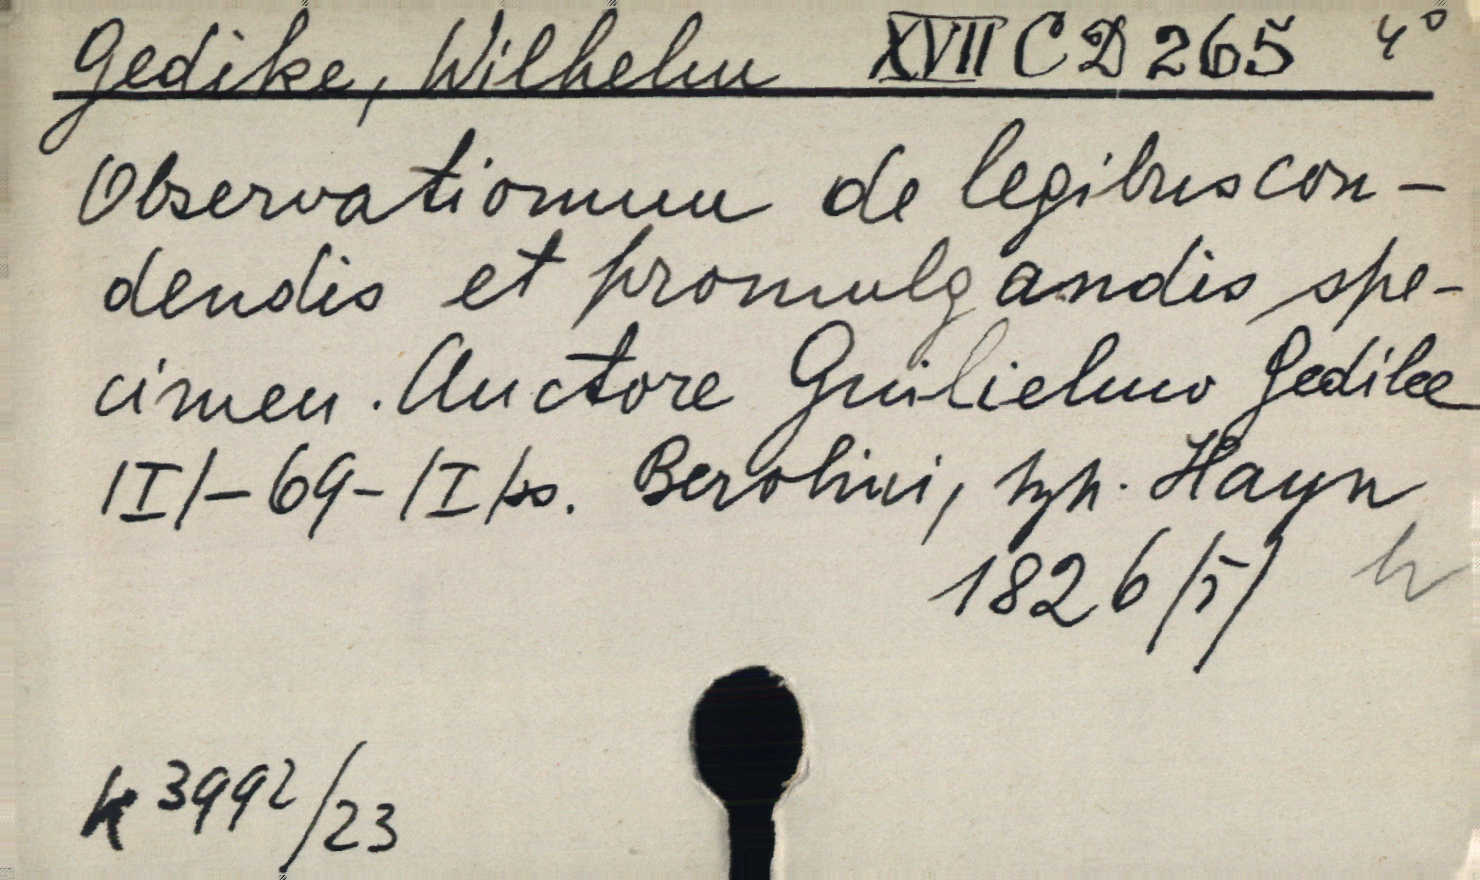 Gedike, Wilhelm XVII C D 265 4°
Observationum de legibus con-
dendis et promulgandis spe-
cimen. Auctore Guilielmo Gedike
/I/-69-/I/ss. Berolini, typ. Hayn
1826/5/
K 3992/23